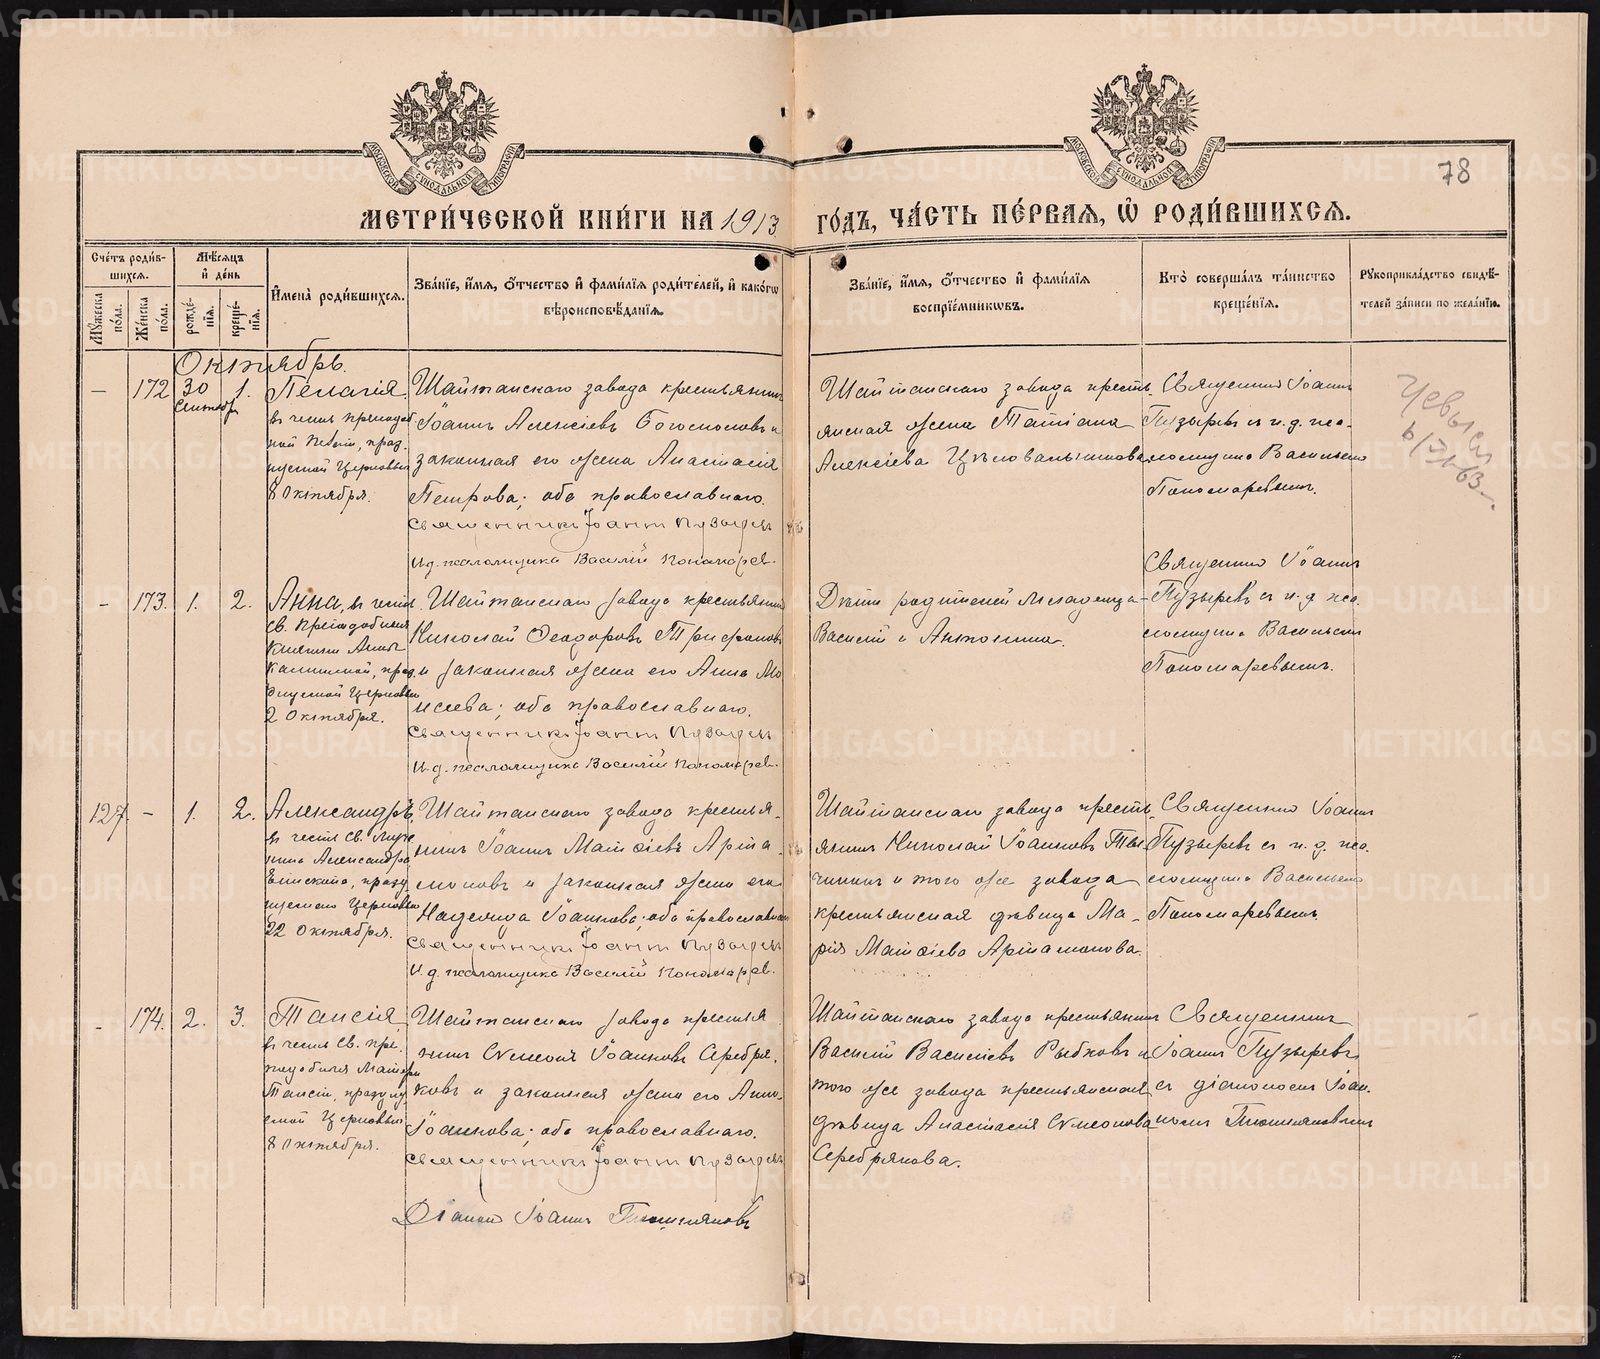 78
МЕТРИ́ЧЕСКОЙ КНИ́ГИ НА 1913 ГО́ДЪ, ЧА́СТЬ ПЕ́РВАЯ, Ѡ РОДИ́ВШИХСЯ.
Сче́тъ роди́в-
шихся.
Мѣ́сяцъ
и҆ де́нь
Мꙋ́жеска по́ла.
Же́нска по́ла.
рожде́-
нїя.
креще́-
нїя.
И҆мена̀ роди́вшихся.
Зва́нїе, и҆́мя, ѻ҆́тчество и҆ фами́лїя роди́телей, и҆ како́гѡ
вѣроисповѣ́данїя.
Зва́нїе, и҆́мя, ѻ҆́тчество и҆ фами́лїя
воспрїе́мникѡвъ.
Кто̀ соверша́лъ та́инство
креще́нїя.
Рꙋкоприкла́дство свидѣ́-
телей за́писи по жела́нїю.
Октябрь.
– 172 30 1.
Сентября
Пелагія
въ честь преподоб
ной Пелагіи, празд
нуемой Церковью
8 Октября.
Шайтанскаго завода крестьянинъ
Іоаннъ Алексіевъ Богомоловъ и
законная его жена Анастасія
Петрова; оба православнаго.
Священникъ Іоаннъ Пузыревъ
И.д. псаломщика Василій Пономарев.
Шайтанскаго завода кресть-
янская жена Татіана
Алексіева Цѣловальникова
Священникъ Іоаннъ
Пузыревъ съ и. д. пса-
ломщика Васильемъ
Пономаревымъ.
– 173. 1. 2.
Анна, въ честь
св. преподобныя
Княгини Анны
Кашинской, празд
нуемой Церковью
2 Октября.
Шайтанскаго завода крестьянинъ
Николай Ѳеодоровъ Трифоновъ
и законная жена его Анна Мо
исеева; оба православнаго.
Священникъ Іоаннъ Пузыревъ
И.д. псаломщика Василій Пономарев.
Дѣти родителей младенца
Василій и Антонина.
Священникъ Іоаннъ
Пузыревъ съ и. д. пса-
ломщика Васильемъ
Пономаревымъ.
127. – 1. 2.
Александръ,
въ честь св. муче
ника Александра
Епископа, празд
нуемаго Церковью
22 Октября.
Шайтанскаго завода крестья-
нинъ Іоаннъ Матѳіевъ Арта-
моновъ и законная жена его
Надежда Іоаннова; оба православнаго
Священникъ Іоаннъ Пузыревъ
И.д. псаломщика Василій Пономарев.
Шайтанскаго завода кресть-
янинъ Николай Іоанновъ
и того же завода
крестьянская дѣвица Ма-
рія Матѳіева Артамонова.
Священникъ Іоаннъ
Пузыревъ съ и. д. пса-
ломщика Васильемъ
Пономаревымъ
– 174. 2. 3.
Таисія
въ честь св. пре-
подобныя Матери
Таисіи, празднуе
емой Церковью
8 Октября.
Шайтанскаго завода крестья
нинъ Симеонъ Іоанновъ Серебря-
ковъ и законная жена его Анна
Іоаннова; оба православнаго.
Священникъ Іоаннъ Пузыревъ
Діаконъ Іоаннъ
Шайтанскаго завода крестьянинъ
Василій Василіевъ Рыбковъ и
того же завода крестьянская
дѣвица Анастасія Симеонова
Серебрякова.
Священникъ
Іоаннъ Пузыревъ
съ діакономъ Іоан-
номъ